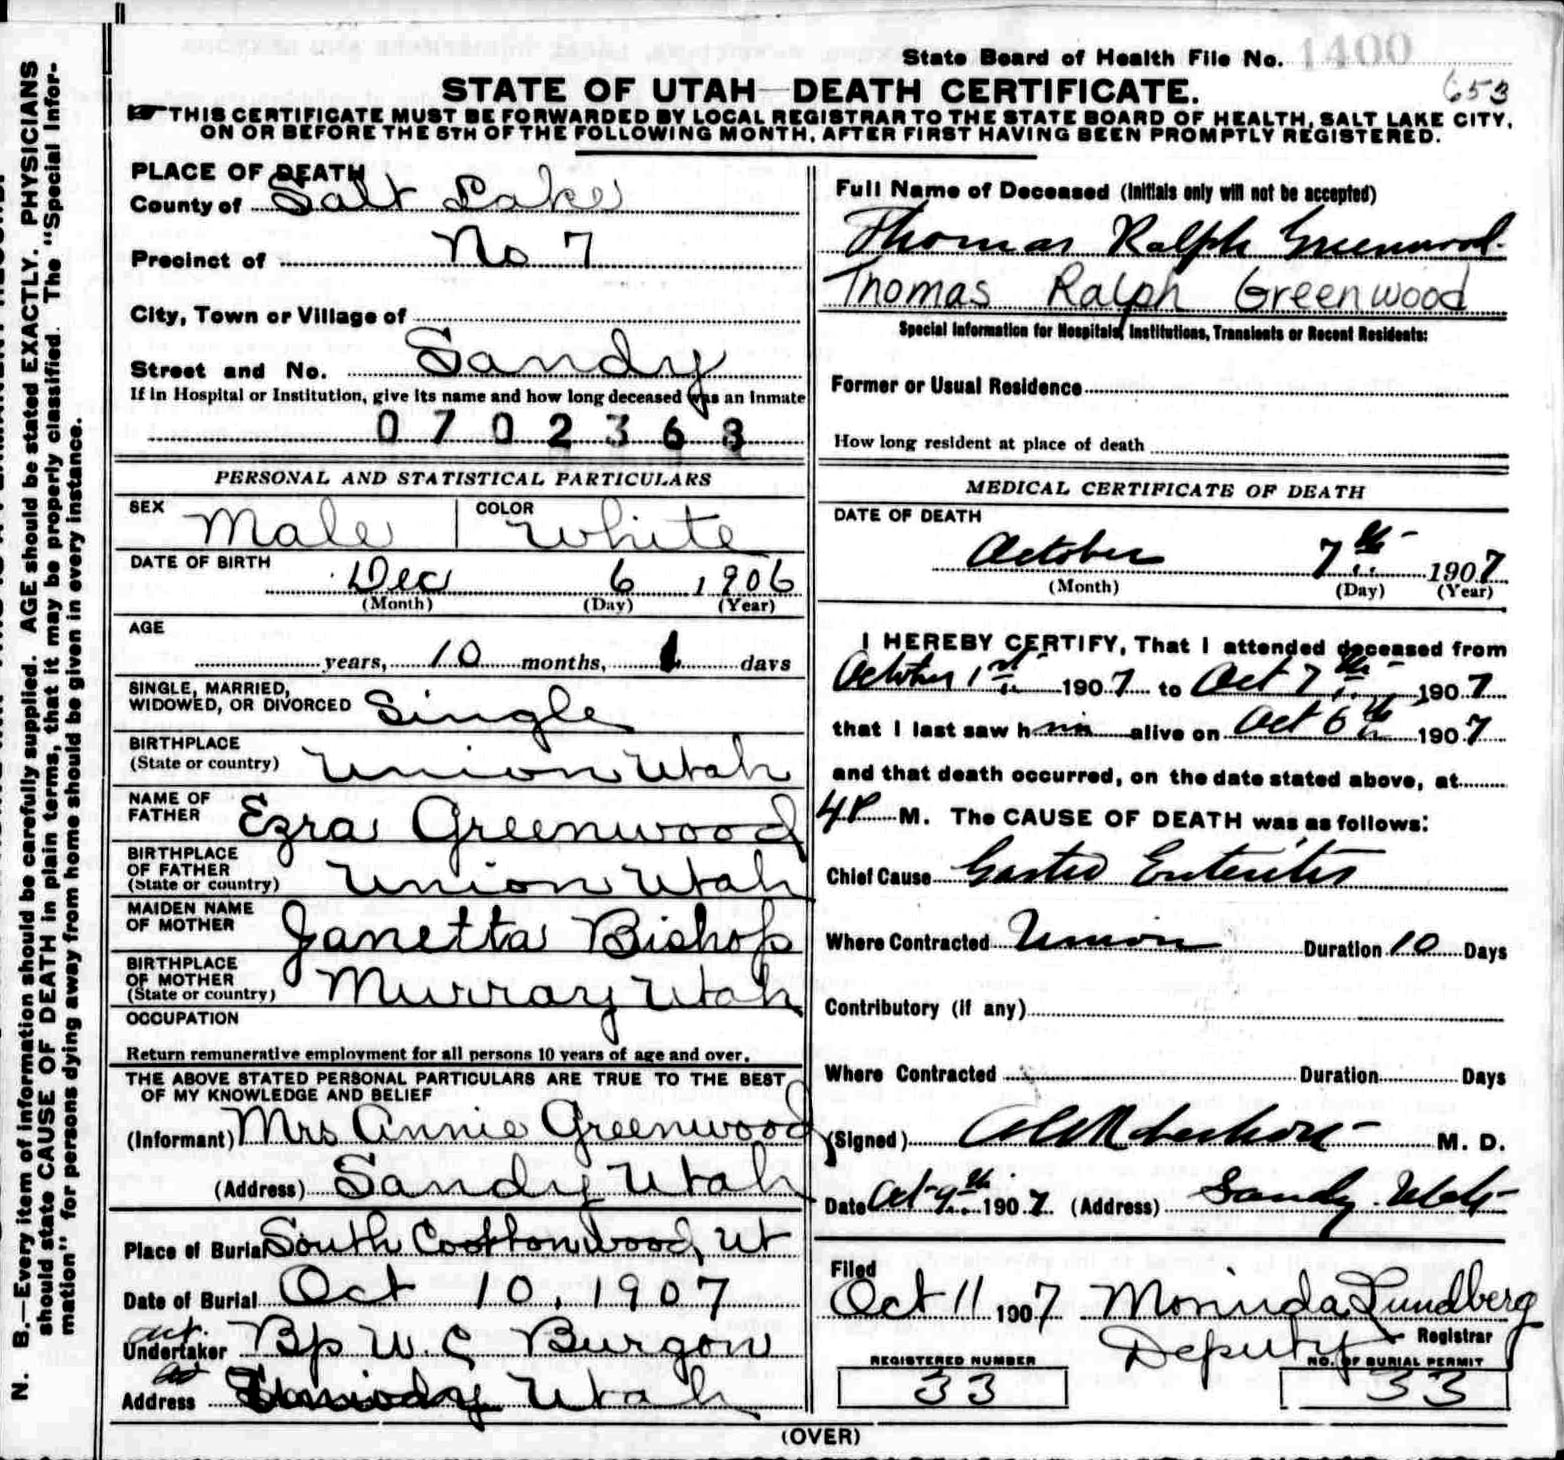 State Board of Health File No. 1400
653
STATE OF UTAH—DEATH CERTIFICATE.
THIS CERTIFICATE MUST BE FORWARDED BY LOCAL REGISTRAR TO THE STATE BOARD OF HEALTH, SALT LAKE CITY,
ON OR BEFORE THE 5TH OF THE FOLLOWING MONTH, AFTER FIRST HAVING BEEN PROMPTLY REGISTERED.
N. B.—Every item of information should be carefully supplied. AGE should be stated EXACTLY. PHYSICIANS
should state CAUSE OF DEATH in plain terms, that it may be properly classified. The "Special Infor-
mation" for persons dying away from home should be given in every instance.
PLACE OF DEATH
County of Salt Lake
Precinct of No 7
City, Town or Village of
Street and No. Sandy
If in Hospital or Institution, give its name and how long deceased was an Inmate
0702368
PERSONAL AND STATISTICAL PARTICULARS
SEX Male COLOR White
DATE OF BIRTH Dec 6 1906
(Month) (Day) (Year)
AGE
years, 10 months, 1 days
SINGLE, MARRIED,
WIDOWED, OR DIVORCED Single
BIRTHPLACE
(State or country) Union Utah
NAME OF
FATHER Ezra Greenwood
BIRTHPLACE
OF FATHER
(State or country) Union Utah
MAIDEN NAME
OF MOTHER Janetta Bishop
BIRTHPLACE
OF MOTHER
(State or country) Murray Utah
OCCUPATION
Return remunerative employment for all persons 10 years of age and over.
THE ABOVE STATED PERSONAL PARTICULARS ARE TRUE TO THE BEST
OF MY KNOWLEDGE AND BELIEF
(Informant) Mrs Annie Greenwood
(Address) Sandy Utah
Place of Burial South Cottonwood, Ut
Date of Burial Oct 10, 1907
act.
Undertaker Bp W. C Burgon
Address Utah
Full Name of Deceased (Initials only will not be accepted)
Thomas Ralph Greenwood.
Thomas Ralph Greenwood
Special Information for Hospitals, Institutions, Transients or Recent Residents:
Former or Usual Residence
How long resident at place of death
MEDICAL CERTIFICATE OF DEATH
DATE OF DEATH
October 7th 1907
(Month) (Day) (Year)
I HEREBY CERTIFY, That I attended deceased from
October 1st 1907 to Oct 7th 1907
that I last saw him alive on Oct 6th 1907
and that death occurred, on the date stated above, at
4P M. The CAUSE OF DEATH was as follows:
Chief Cause Gastro Enteritis
Where Contracted Union Duration 10 Days
Contributory (if any)
Where Contracted Duration Days
(Signed) M. D.
Date Oct 9th 1907 (Address) Sandy Utah
Filed
Oct 11 1907 Morinda Lundberg
Deputy Registrar
REGISTERED NUMBER
33
NO. OF BURIAL PERMIT
33
(OVER)